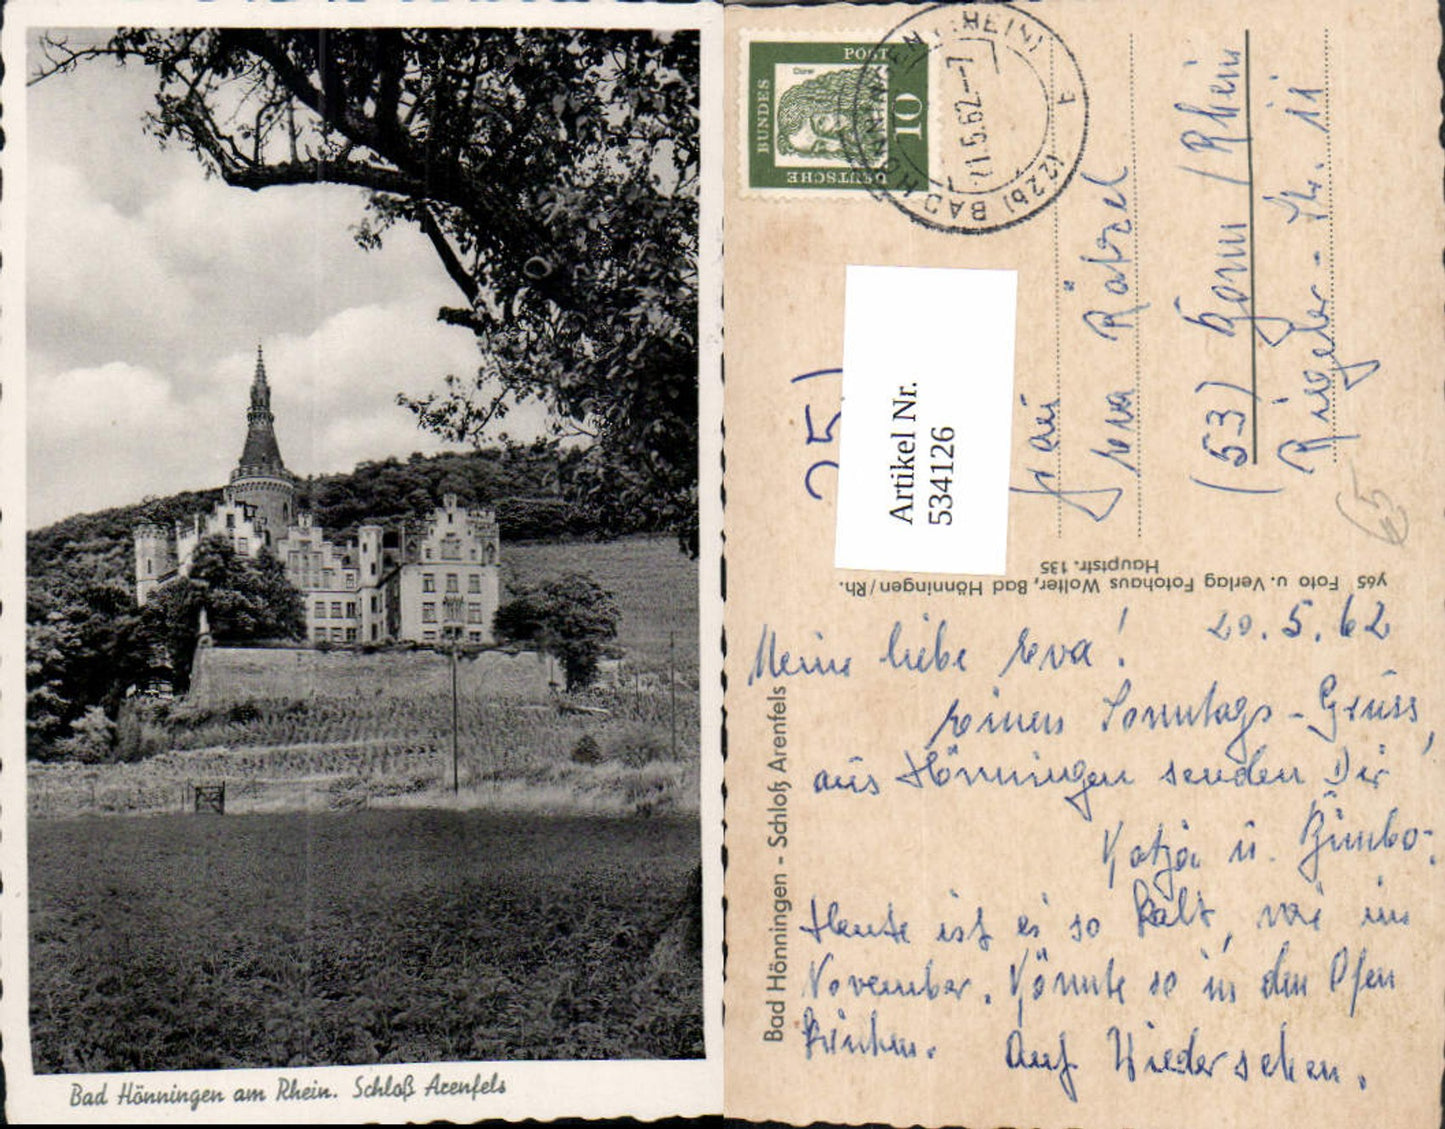 Bad Hönningen am Rhein. Schloß Arenfels
DEUTSCHE
BUNDES
POST
10
Dürer
(22b) BAD HÖNNINGEN (RHEIN)
21.5.62--7
t
Artikel Nr.
534126
Frau
Eva Rätzel
(53) Bonn / Rhein
Rieger-Str. 11
65
y65 Foto u. Verlag Fotohaus Wolter, Bad Hönningen/Rh.
Hauptstr. 135
Bad Hönningen - Schloß Arenfels
20.5.62
Meine liebe Eva!
Einen Sonntags-Gruss,
aus Hönningen senden Dir
Katja u. Bimbo.
Heute ist es so kalt, wie im
November. Könnte so in den Ofen
kriechen. Auf Wiedersehen.